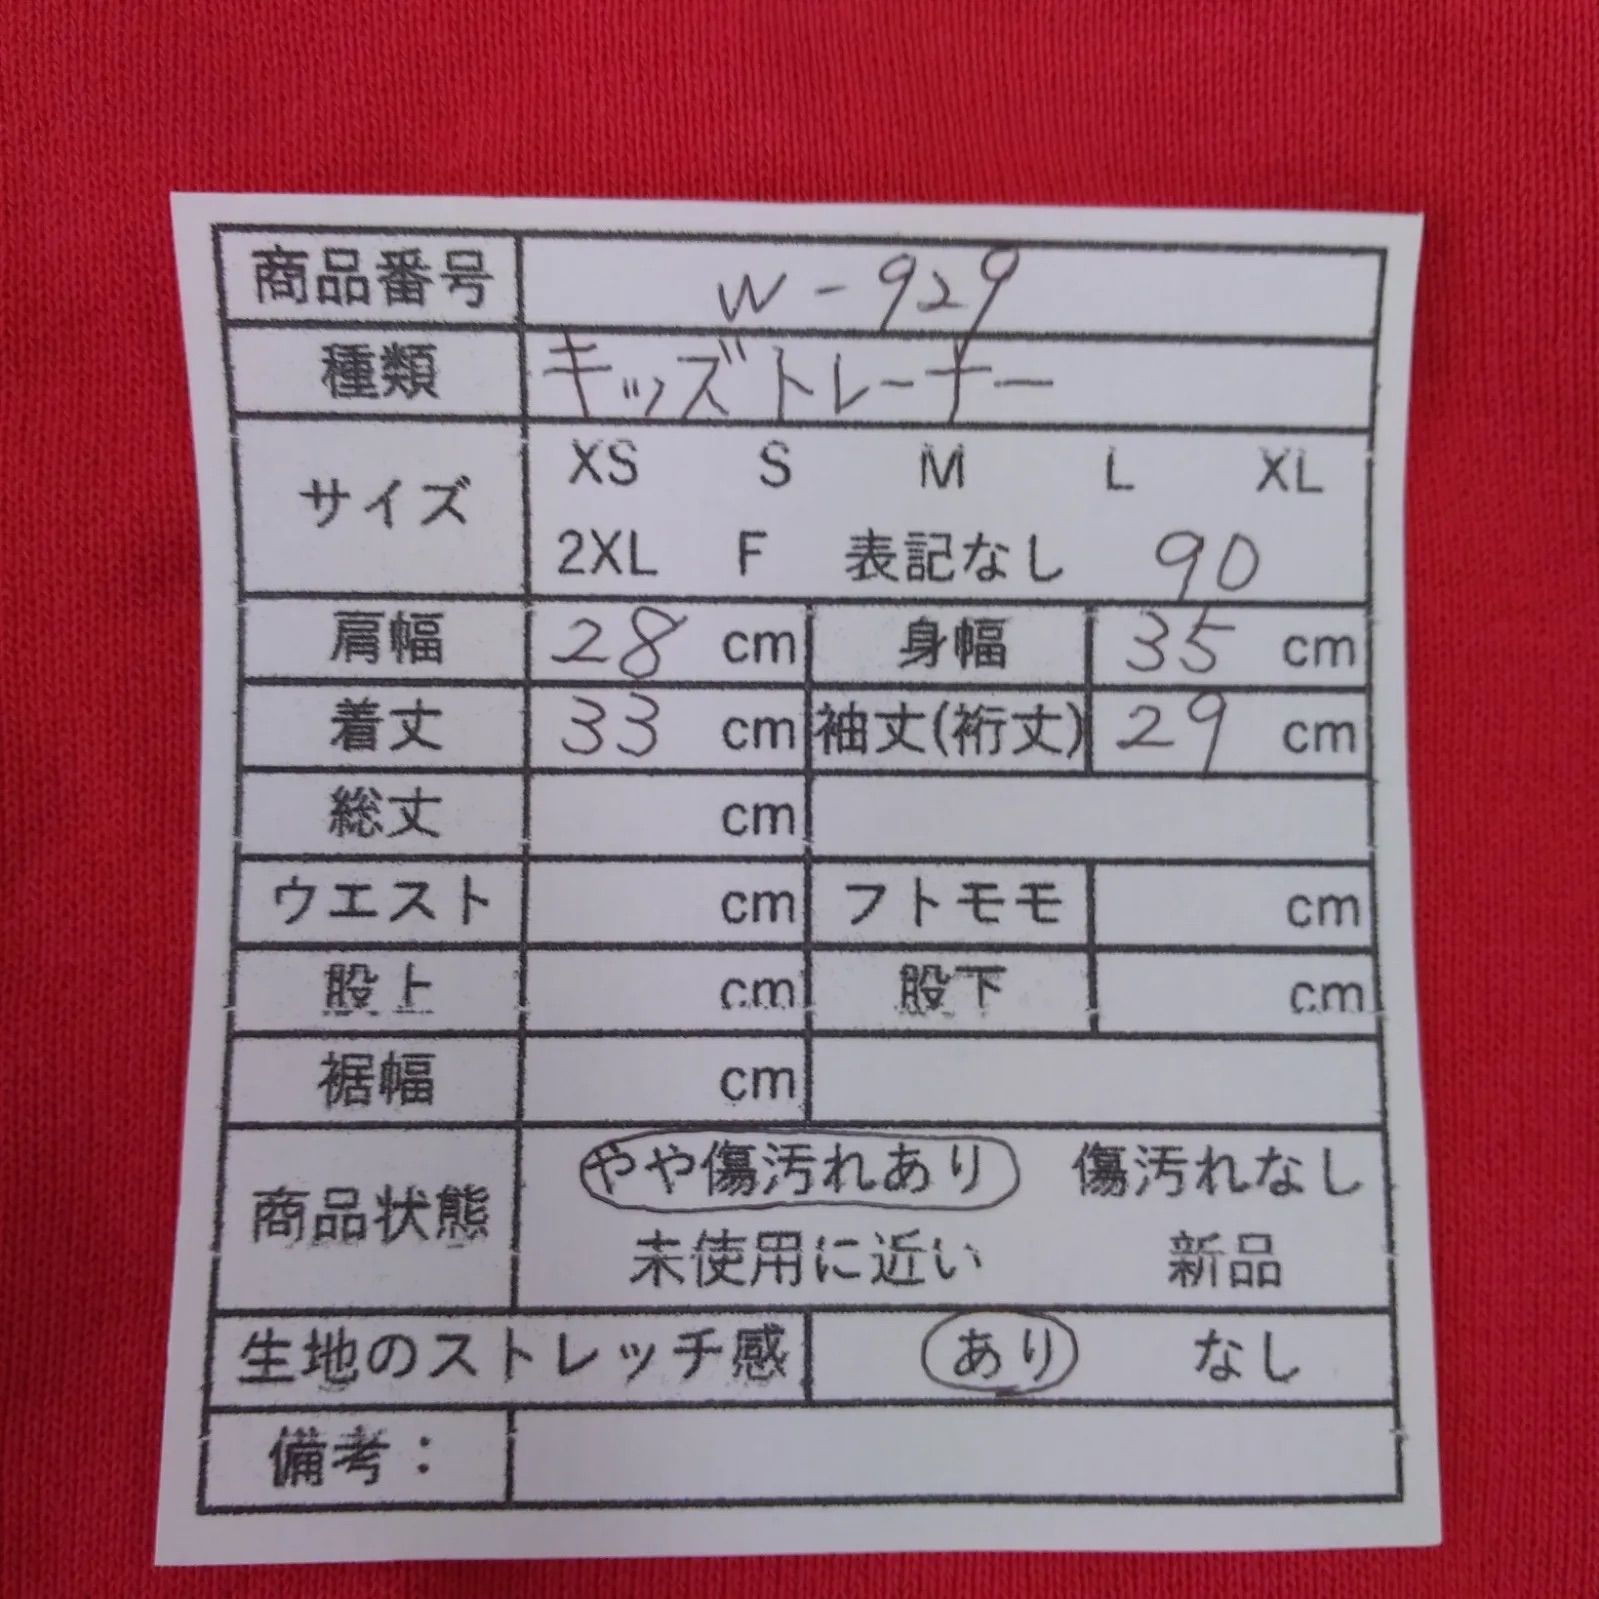 商品番号 W-929
種類 キッズトレーナー
サイズ XS S M L XL
2XL F 表記なし 90
肩幅 28 cm 身幅 35 cm
着丈 33 cm 袖丈(裄丈) 29 cm
総丈 cm
ウエスト cm フトモモ cm
股上 cm 股下 cm
裾幅 cm
商品状態 やや傷汚れあり 傷汚れなし
未使用に近い 新品
生地のストレッチ感 あり なし
備考：